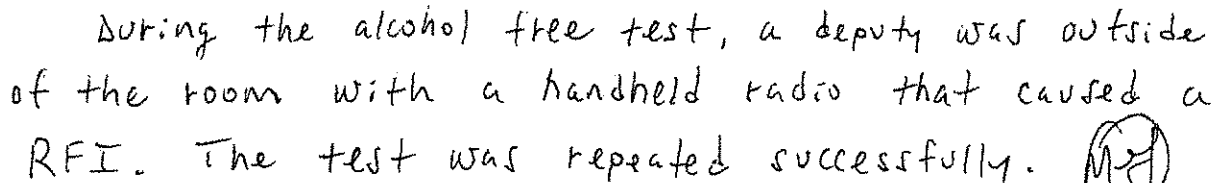 During the alcohol free test, a deputy was outside
of the room with a handheld radio that caused a
RFI. The test was repeated successfully.